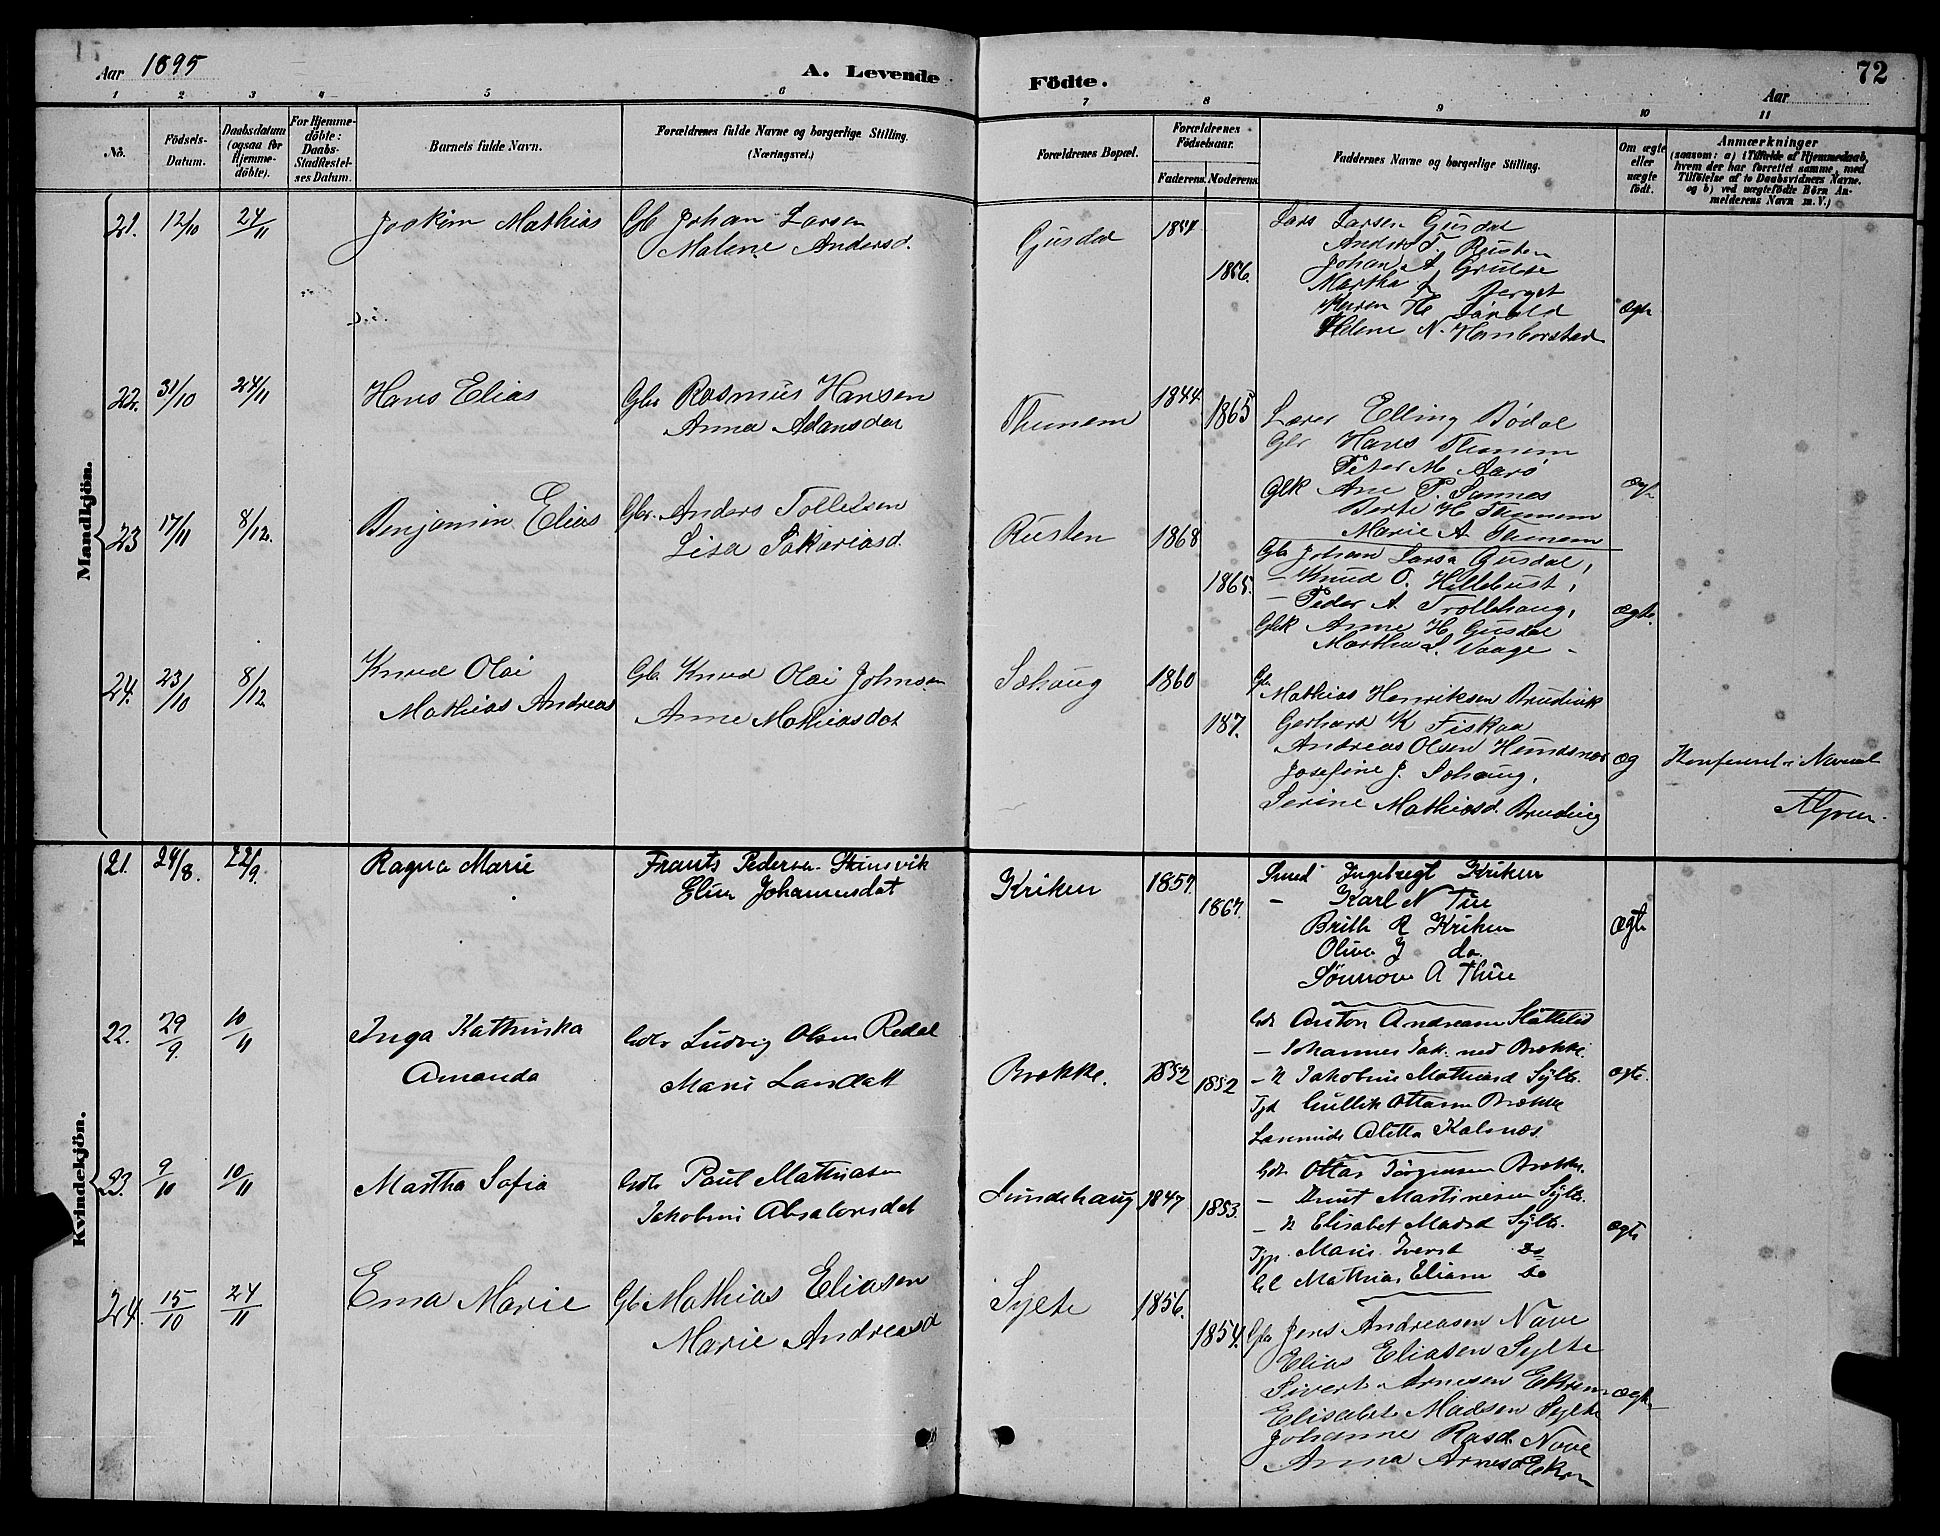 Aar 1895
A. Levende
Födte.
72
Aar
1 2 3 4 5 6 7 8 9 10 11
No.
Födsels-
Datum.
Daabsdatum
(ogsaa for
Hjemme-
döbte).
For Hjemme-
döbte:
Daabs-
Stadfestel-
ses Datum.
Barnets fulde Navn.
Forældrenes fulde Navne og borgerlige Stilling.
(Næringsvei.)
Forældrenes Bopæl.
Forældrenes
Födselsaar.
Faderens. Moderens.
Faddernes Navne og borgerlige Stilling.
Om ægte
eller
uægte
födt.
Anmærkninger
(saasom: a) i Tilfælde af Hjemmedaab,
hvem der har forrettet samme, med
Tilföielse af to Daabsvidners Navne.
og b) ved uægtefödte Börn An-
melderens Navn m. V.)
Mandkjön.
21. 12/10 24/11 Joakim Mathias Gb Johan Larsen
Malene Andersd.
Gusdal 1857 1856.
Lars Larsen Gusdal
Anders T. Rusten
Johan A
Martha
Maren H
Helene N. Hamborstad
ægte
22. 31/10 24/11 Hans Elias Gbr Rasmus Hansen
Anna Adamsdat
Thunem 1844 1865
Lærer Elling Bødal
Gbr Hans Thunem
Peter M Aarö
Glk Ane P. Sannes
Berte H Thunem
Marie A Thunem
ægte
23 17/11 8/12. Benjamin Elias Gbr. Anders Tollefsen
Lisa Sakariasd.
Rusten 1868 1865.
Gb Johan Larsa Gusdal,
- Knud O. Hillebust,
- Peder A Trollehaug,
Glk Anne H. Gusdal
Martha S. Vaage -
ægte.
24. 23/10 8/12 Knud Olai
Mathias Andreas
Gb. Knud Olai Johnsen
Anne Mathiasdat
Sohaug 1860 187.
Gb Mathias Henriksen Brudevik
Gerhard K Fiskaa
Andreas Olsen Hundsnes
Josefine J. Sohaug.
Serine Mathiasd. Bruding
æg
Kvindekjön.
21. 29/8. 22/9. Ragna Marie Frants Pedersen Stensvik
Elen Johannesdat
Kriken 1857. 1867.
Smed Ingebregt Kriken
- Karl N Tue
Brith R Kriken
Oliva J do.
Sönnove A Thue
Ægte
22. 29/9. 10/11 Inga Kathinka
Amanda
Gdbr Ludvig Olsen Redal
Mari Larsdatt
Brekke. 1852 1852
Gdb Anton Andreasen Slettelid
- Johannes Jak. ned Brekke.
- K Jakobine Mathiasd Sylte.
Tjd Gullik Ottesen Brekke
Aletta Kalsnæs
ægte.
23. 9/10 10/11 Martha Sofia Gdbr Paul Mathiasen
Jakobine Absalonsdat
Lundehaug 1847 1853.
Gdb Ottar Jörgensen Brekke.
- Knut Martinesen Sylte.
- K Elisabet Madsd Sylte.
Tjp. Marie Iversd do
Gl Mathias Eliasen do
ægte
24. 15/10 24/11 Ema Marie Gb. Mathias Eliasen
Marie Andreasd
Sylte 1856. 1854.
Gb Jens Andreasen Nave
Elias Eliasen Sylte
Sivert Arnesen Ekrem
Elisabet Madsen Sylte
Johanne Rasd. Nove
Anna Arnesd Ekrem
ægte